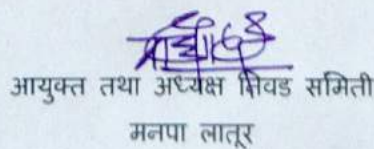 आयुक्त तथा अध्यक्ष निवड समिती
मनपा लातूर